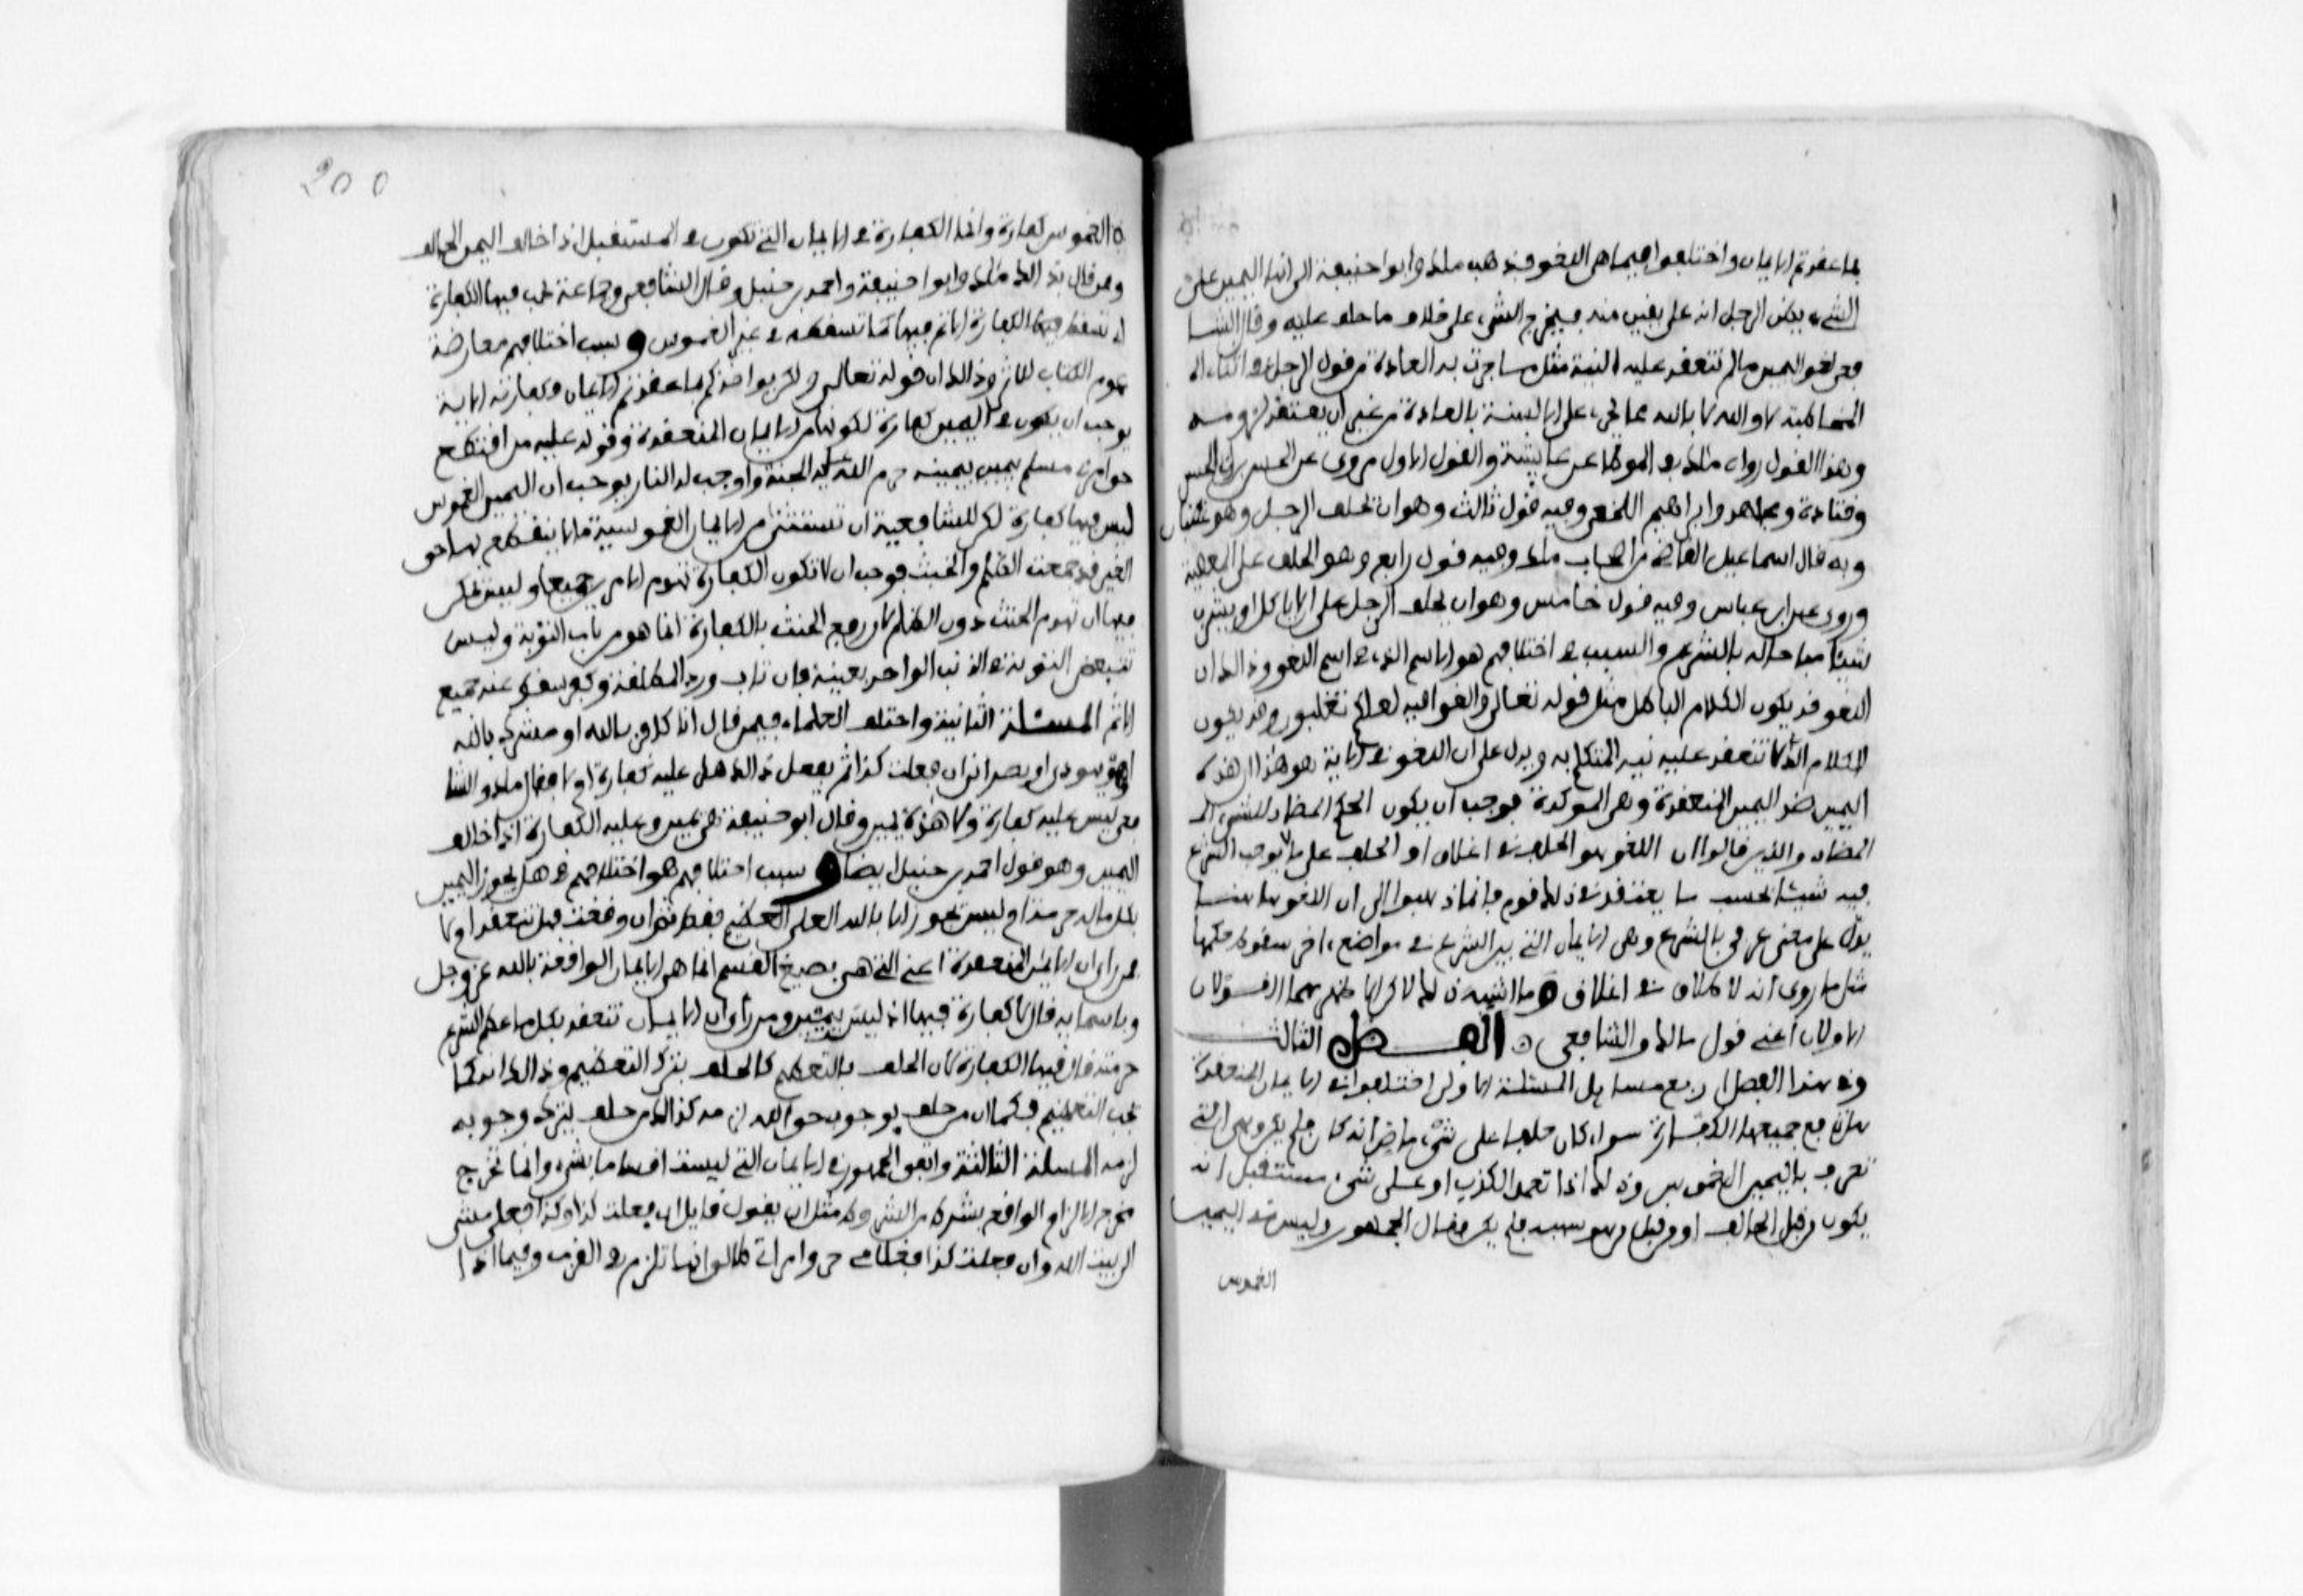 بما عقدتم الايمان واختلفوا فيما هي اللغو فذهب ملك وابو احنيفة الى انها اليمين على
الشيء يظن الرجل انه على يقين منه فيخرج الشيء على خلاف ما حلف عليه وقال الشا
فعي لغو اليمين ما لم تنعقد عليه النية مثل ما جرت به العادة من قول الرجل في اثناء ال
المخاطبة لا والله لا بالله مما يجري على الالسنة بالعادة من غير ان يعتقد لزومه
وهذا القول رواه ملك في الموطا عن عايشة والقول الاول مروي عن الحسن بن ابي الحسن
وقتادة ومجاهد وابراهيم النخعي وفيه قول ثالث وهو ان يحلف الرجل وهو غضبان
وبه قال اسماعيل القاضي من اصحاب ملك وفيه قول رابع وهو الحلف على المعصية
وروي عن ابن عباس وفيه قول خامس وهو ان يحلف الرجل على ان لا ياكل او يشرب
شيئا مباحا له بالشرع والسبب في اختلافهم هو الاسم الذي في اسم اللغو وذالك ان
اللغو قد يكون الكلام الباطل مثل قوله تعالى والغوا فيه لعلكم تغلبون وقد يكون
الكلام الذي لا تنعقد عليه نية المتكلم به ويدل على ان اللغو في الاية هو هذا ان هذه
اليمين ضد اليمين المنعقدة وهي الموكدة فوجب ان يكون الحكم المضاد للشيء ال
المضاد والذين قالوا ان اللغو هو الحلف في اغلاق او الحلف على ما لا يوجب الشرع
فيه شيئا بحسب ما يعتقد في ذلك قوم فانما ذهبوا الى ان اللغو هاهنا
يدل على معنى عرفي بالشرع وهي الايمان التي بين الشرع في مواضع اخر سقوط حكمها
مثل ما روي انه لا طلاق في اغلاق وما اشبه ذلك لاكن الاظهر هما القولان
الاولان اعني قول مالك والشافعي الفصل الثالث
وفي هذا الفصل اربع مسايل المسئلة الاولى اختلفوا في الايمان المنعقدة
هل يرفع جميعها الكفارة سواء كان حلفا على شيء ماض انه كان فلم يكن وهي التي
تعرف باليمين الغموس وذلك اذا تعمد الكذب او على شيء مستقبل انه
يكون من قبل الحالف او من قبل من هو سببه فلم يكن فقال الجمهور وليس في اليمين
الغموس
200
الغموس كفارة وانما الكفارة في الايمان التي تكون في المستقبل اذا خالف اليمين الحالف
وممن قال بذالك ملك وابو احنيفة واحمد بن حنبل وقال الشافعي وجماعة يجب فيها الكفارة
اي تسقط فيها الكفارة الاثم فيها كما تسقطه في غير الغموس وسبب اختلافهم معارضة
عموم الكتاب للاثر وذالك ان قوله تعالى ولكن يواخذكم بما عقدتم الايمان وكفارته الاية
يوجب ان يكون في اليمين كفارة لكونها من الايمان المنعقدة وقوله عليه من اقتطع
حق امرئ مسلم بيمينه حرم الله عليه الجنة واوجب له النار يوجب ان اليمين الغموس
ليس فيها كفارة لكن للشافعية ان تستثني من الايمان الغموسية ما لا يقتطع بها حق
الغير قد جمعت الظلم والحنث فوجب ان لا تكون الكفارة تهدم الامرين جميعا وليس يمكن
فيها ان تهدم الحنث دون الظلم لان رفع الحنث بالكفارة انما هو من باب التوبة وليس
تتبعض التوبة في الذنب الواحد بعينه فان تاب ورد المظلمة وكفر سقط عنه جميع
الاثم المسئلة الثانية واختلف العلماء فيمن قال انا كافر بالله او مشرك بالله
او يهودي او نصراني ان فعلت كذا ثم يفعل ذالك هل عليه كفارة او لا فقال ملك والشا
فعي ليس عليه كفارة ولا هذه يمين وقال ابو حنيفة هي يمين وعليه الكفارة اذا خالف
اليمين وهو قول احمد بن حنبل ايضا وسبب اختلافهم هو اختلافهم في هل يجوز اليمين
بكل ما له حرمة ام ليس يجوز الا بالله العلي العظيم فقط ثم ان وقعت فهل تنعقد ام لا
فمن راى ان الايمان المنعقدة اعني التي هي بصيغ القسم انما هي الايمان الواقعة بالله عز وجل
وباسمايه قال لا كفارة فيها اذ ليس بيمين ومن راى ان الايمان تنعقد بكل ما عظم الشرع
حرمته قال فيها الكفارة لان الحلف بالتعظيم كالحلف بترك التعظيم وذالك انه كما
يجب التعظيم فكما ان من حلف بوجوب حق الله لزمه كذالك من حلف بترك وجوبه
لزمه المسئلة الثالثة واتفق الجمهور في الايمان التي ليست اقساما بشيء وانما تخرج
مخرج الالزام الواقع بشرط من الشروط مثل ان يقول قايل ان فعلت كذا وكذا فعلي مشي
الى بيت الله وان فعلت كذا فغلامي حر وامراتي طالق انها تلزم في القرب وفيما اذا